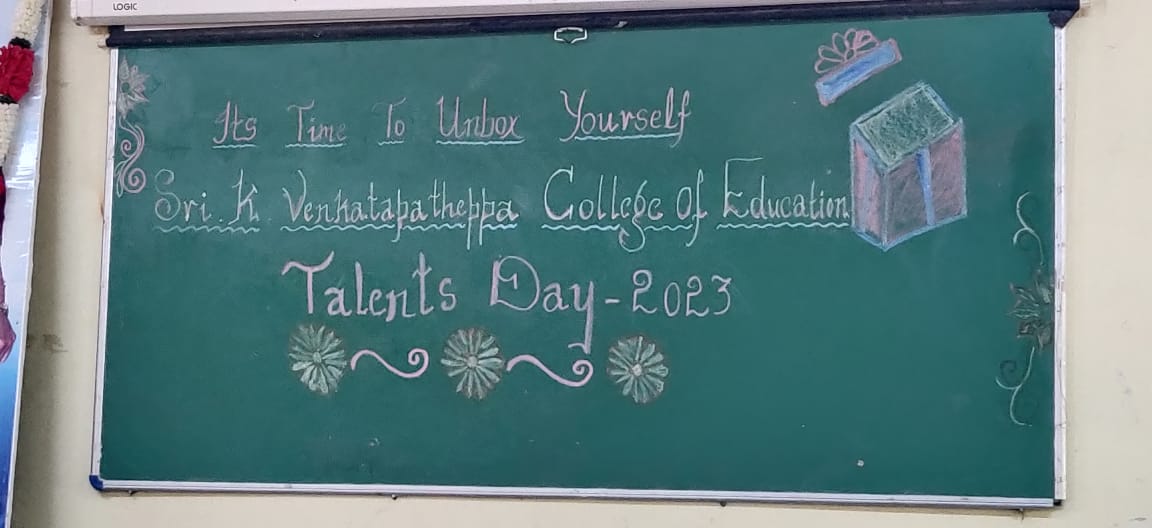 LOGIC
Its Time To Unbox Yourself
Sri. K. Venkatapatheppa College Of Education
Talents Day-2023